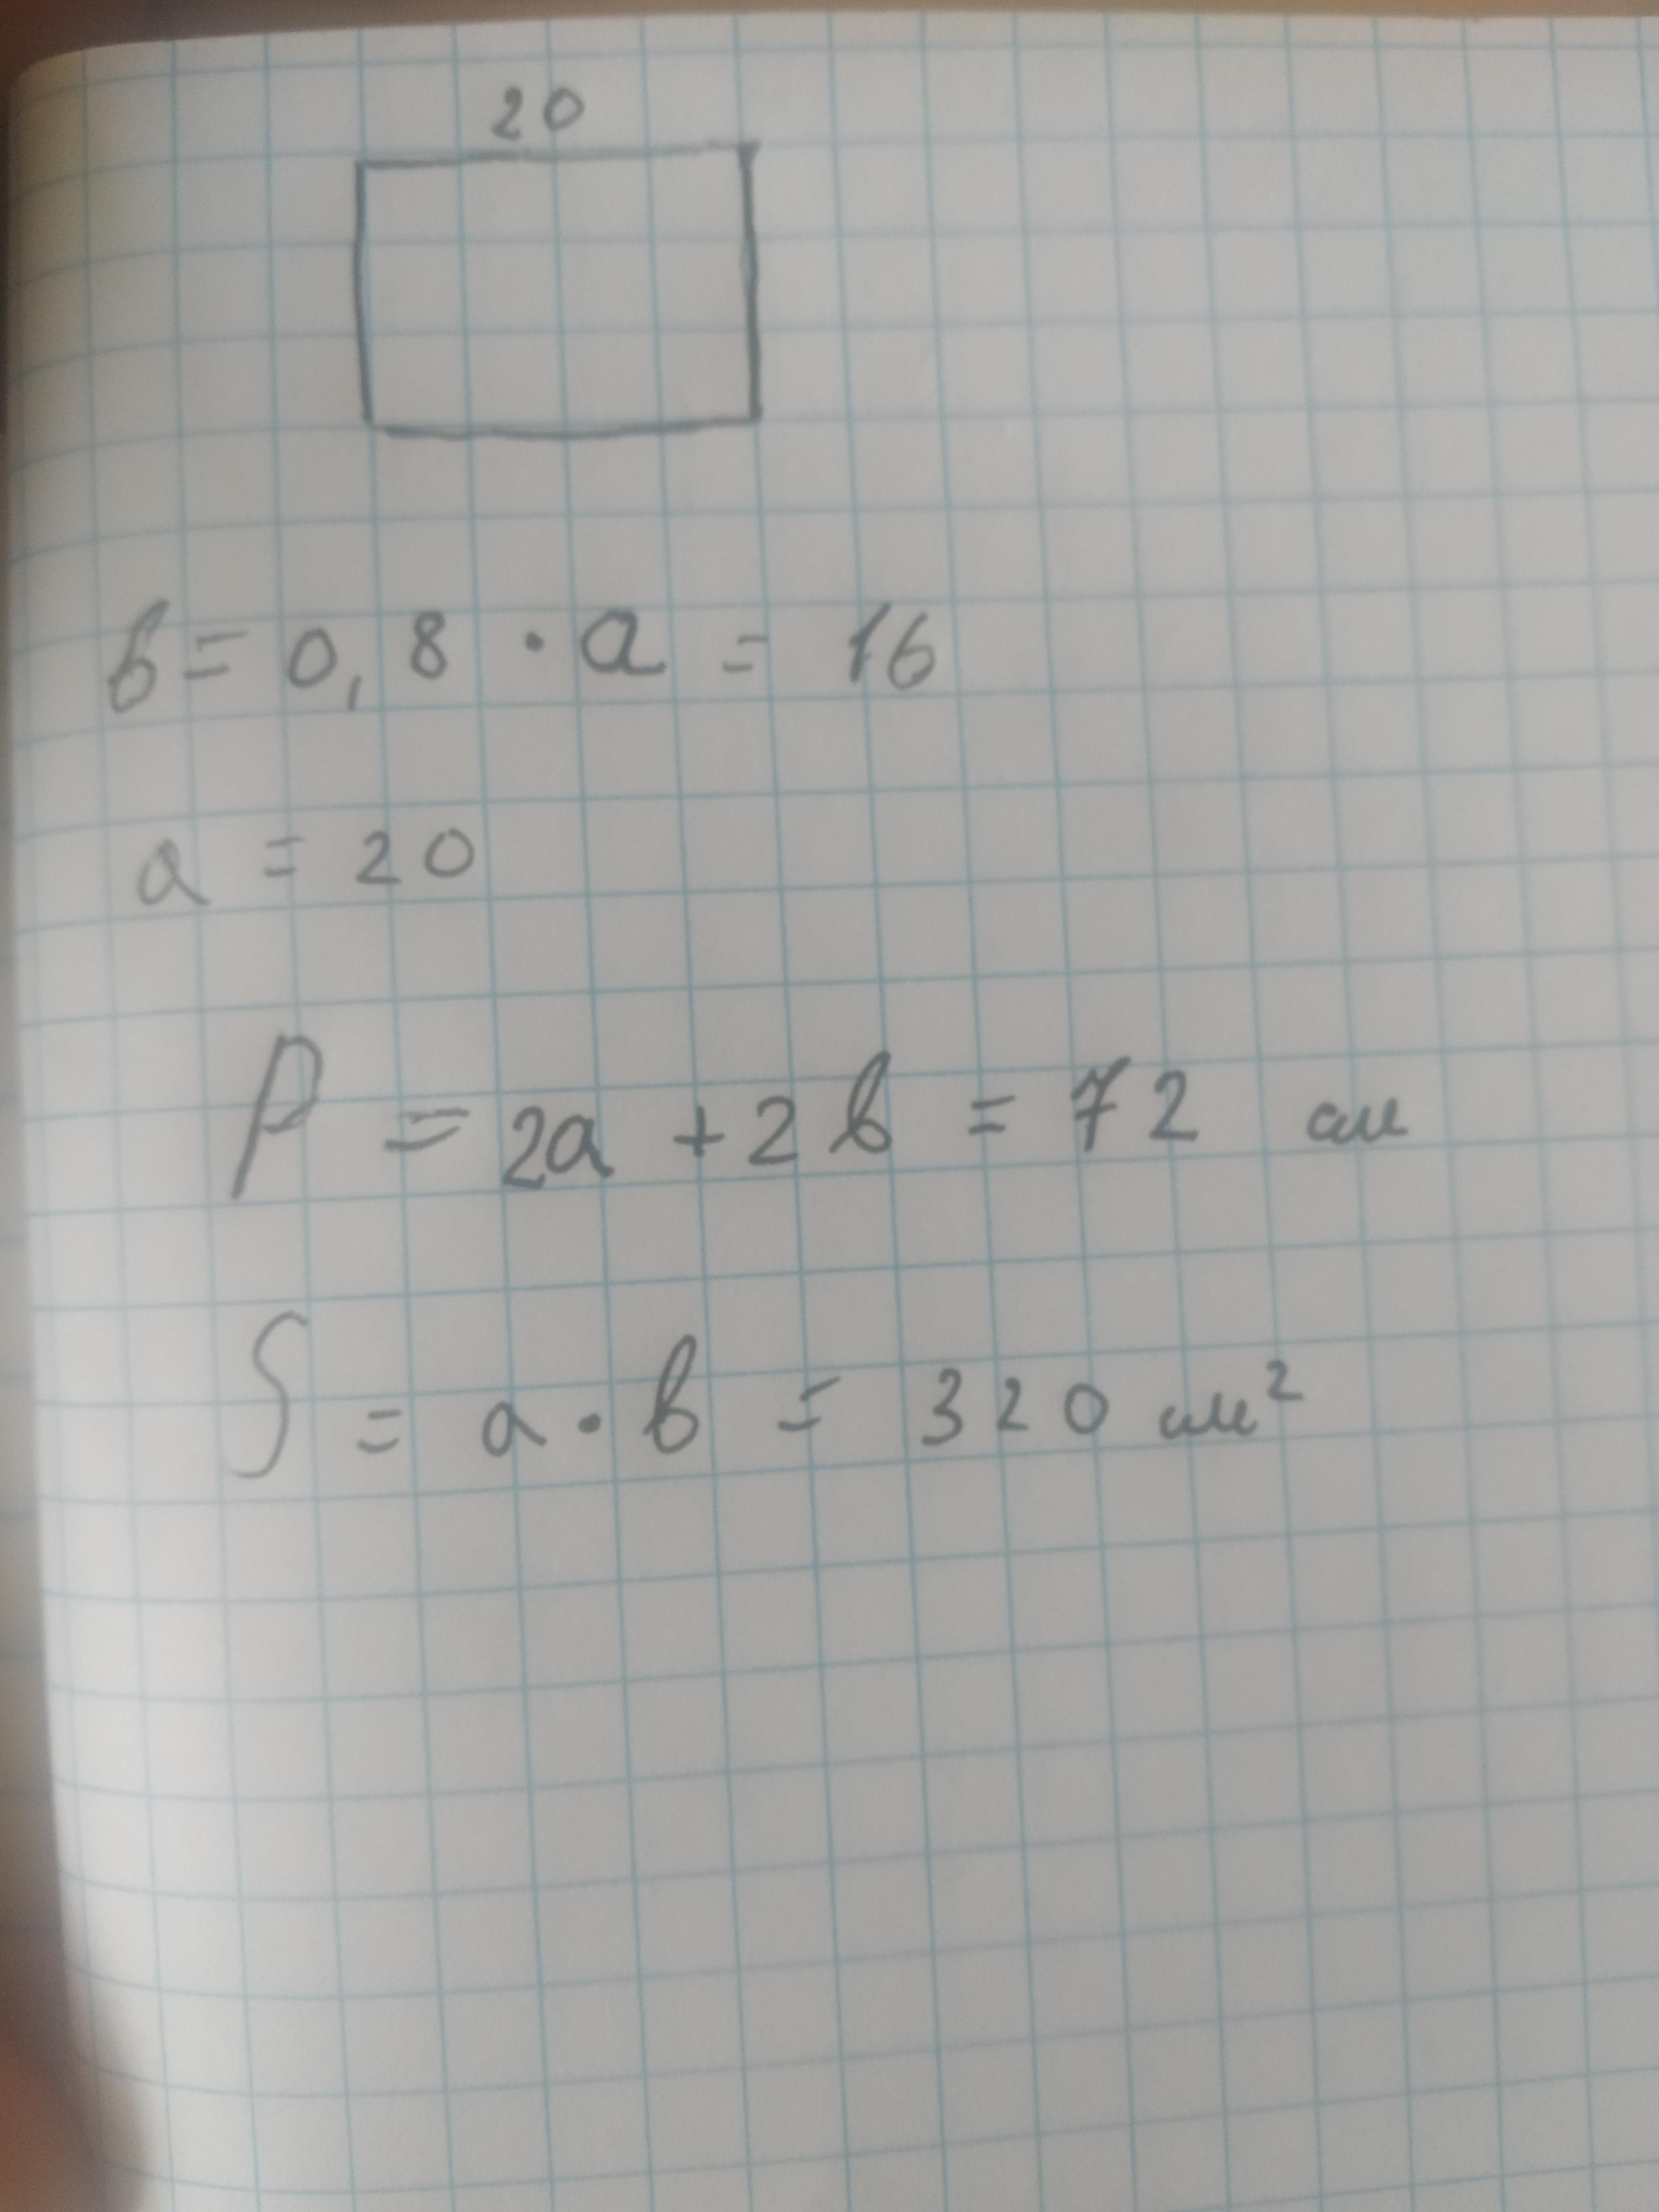 20
в = 0,8 · a = 16
a = 20
P = 2a + 2в = 72 см
S = a · в = 320 см²